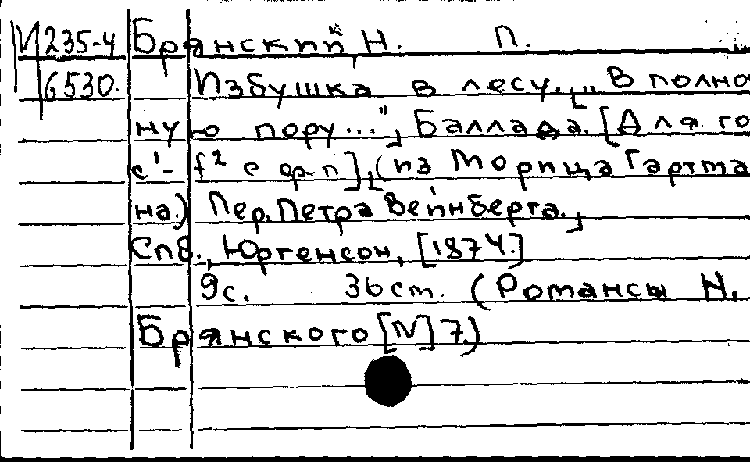 И 235-4 Брянский, Н. П.
6530. Избушка в лесу. „В полно
ную пору...", Баллада. [Для го
с¹-f² с ф-п], (из Морица Гартма
на.) Пер. Петра Вейнберга.,
Спб., Юргенсон, [1874.]
9с. 36 ст. (Романсы Н.
Брянского [№] 7.)